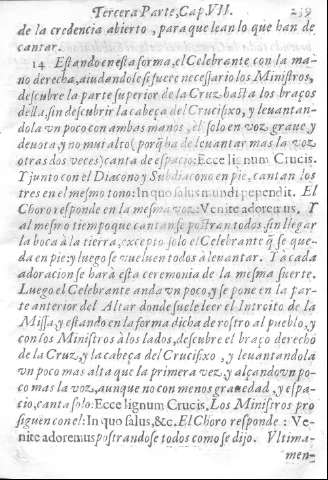 Tercera Parte, Cap. VII. 239
de la credencia abierto, para que lean lo que han de
cantar.
14 Estando en esta forma, el Celebrante con la ma-
no derecha, aiudandole si fuere necessario los Ministros,
descubre la parte superior de la Cruz hasta los braços
della, sin descubrir la cabeça del Crucifixo, y leuantan-
dola vn poco con ambas manos, el solo en voz graue y
deuota, y no mui alto (porq̃ ha de leuantar mas la voz
otras dos veces) canta de espacio: Ecce lignum Crucis.
Y junto con el Diacono y Subdiacono en pie, cantan los
tres en el mesmo tono: In quo salus mundi pependit. El
Choro responde en la mesma voz: Venite adoremus. Y
al mesmo tiempo que cantan se postran todos sin llegar
la boca à la tierra, excepto solo el Celebrante q̃ se que-
da en pie: y luego se vueluen todos à leuantar. Y a cada
adoracion se hará esta ceremonia de la mesma suerte.
Luego el Celebrante anda vn poco, y se pone en la par-
te anterior del Altar donde suele leer el Introito de la
Missa, y estando en la forma dicha de rostro al pueblo, y
con los Ministros à los lados, descubre el braço derecho
de la Cruz, y la cabeça del Crucifixo, y leuantandola
vn poco mas alta que la primera vez, y alçando vn po-
co mas la voz, aunque no con menos grauedad, y espa-
cio, canta solo: Ecce lignum Crucis. Los Ministros pro
siguen con el: In quo salus, &c. El Choro responde: Ve-
nite adoremus postrandose todos como se dijo. Vltima-
men-